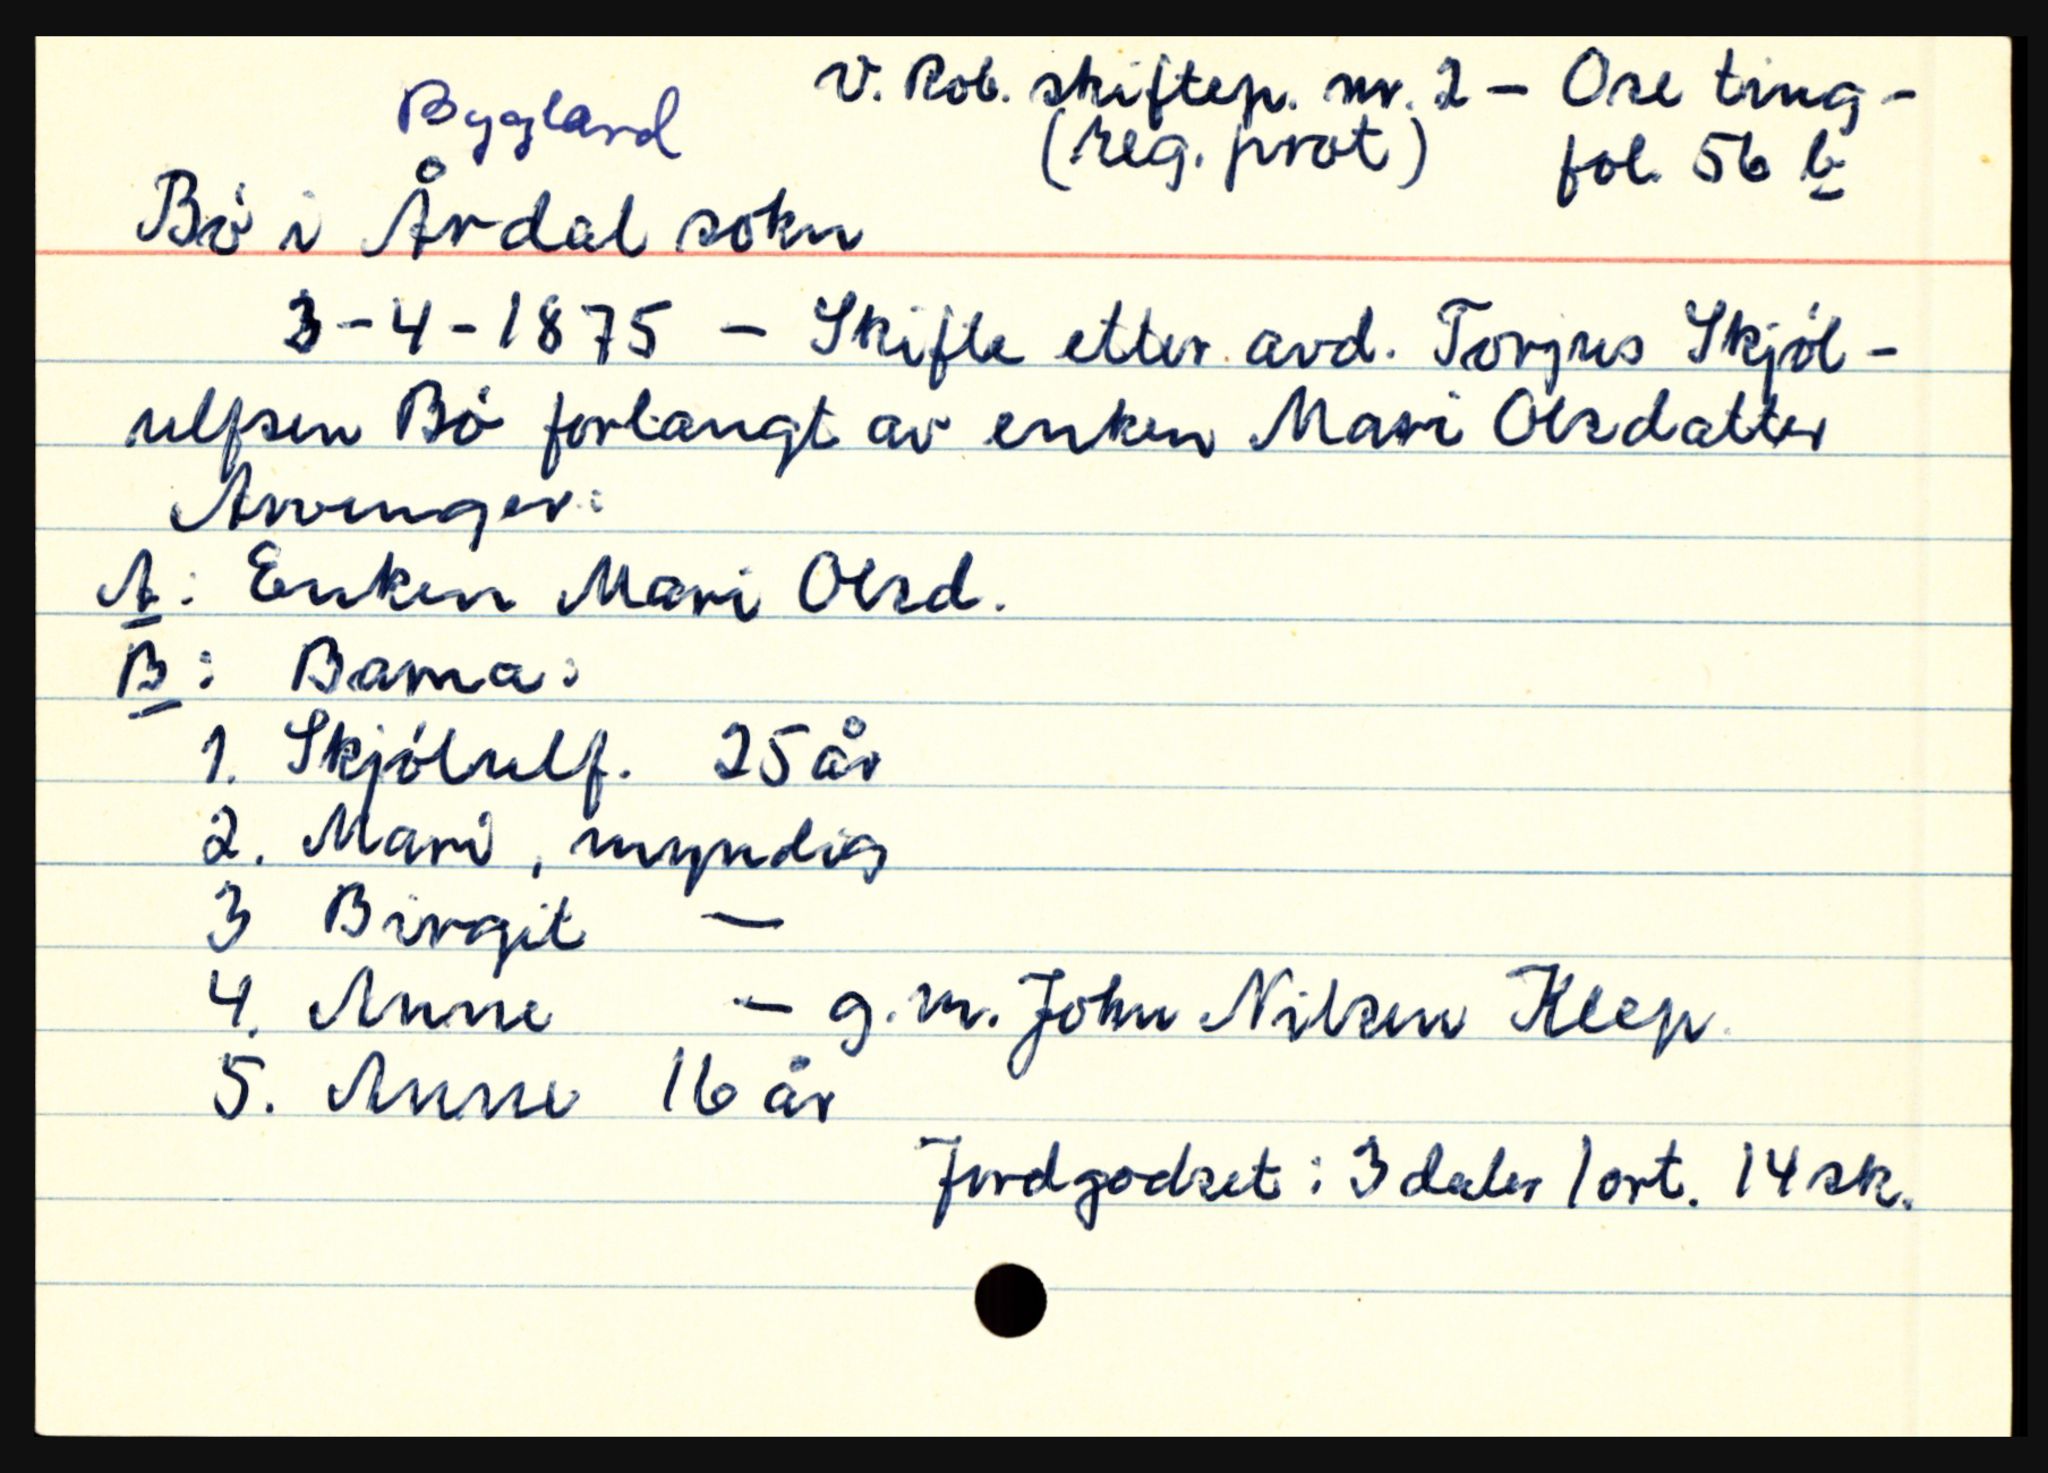 Bygland
V. Rob. skiftep. nr. 2 - Ose ting -
(reg. prot) fol. 56 b
Bö i Årdal sokn
3-4-1875 - Skifte etter avd. Torjus Skjöl-
ulfsen Bö forlangt av enken Mari Olsdatter
Arvinger:
A: Enken Mari Olsd.
B: Barna:
1. Skjölulf. 25 år
2. Mari, myndig
3 Birgit —
4. Anne — g.m. John Nilsen Kleep.
5. Anne 16 år
Jordgodset: 3 daler 1 ort. 14 sk.